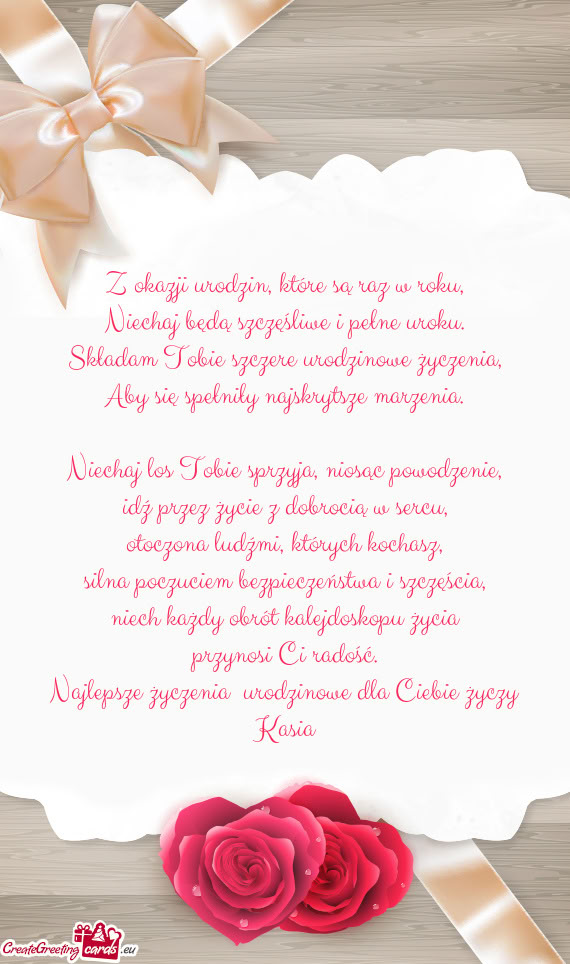 Z okazji urodzin, które są raz w roku,
Niechaj będą szczęśliwe i pełne uroku.
Składam Tobie szczere urodzinowe życzenia,
Aby się spełniły najskrytsze marzenia.

Niechaj los Tobie sprzyja, niosąc powodzenie,
idź przez życie z dobrocią w sercu,
otoczona ludźmi, których kochasz,
silna poczuciem bezpieczeństwa i szczęścia,
niech każdy obrót kalejdoskopu życia
przynosi Ci radość.
Najlepsze życzenia urodzinowe dla Ciebie życzy
Kasia
CreateGreeting cards .eu